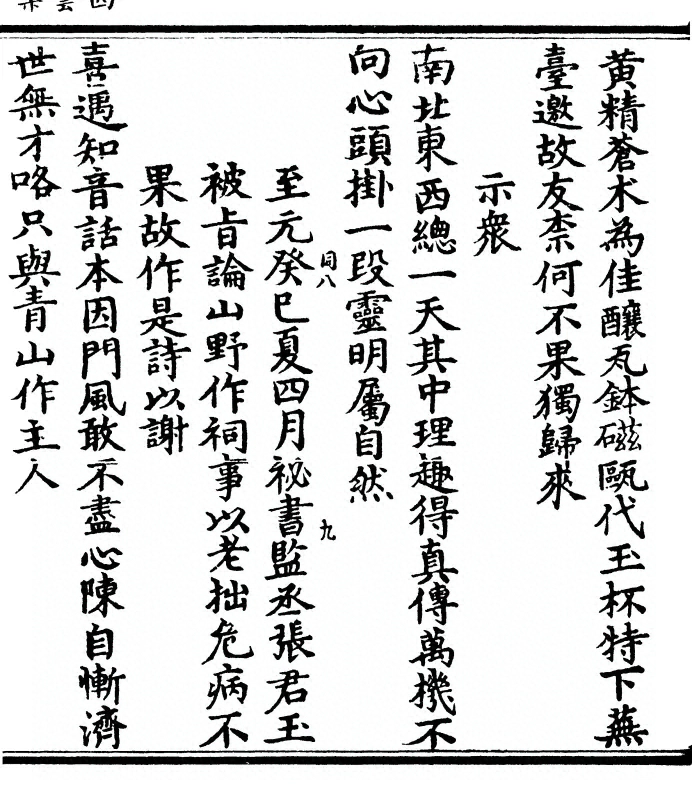 黄精蒼术為佳釀瓦鉢磁甌代玉杯特下蕪
臺邀故友柰何不果獨歸來
示衆
南北東西總一天其中理趣得真傳萬機不
向心頭掛一段靈明屬自然
同八
至元癸巳夏四月祕書監丞張君玉
九
被旨論山野作祠事以老拙危病不
果故作是詩以謝
喜遇知音話本因門風敢不盡心陳自慚濟
世無才咯只與青山作主人